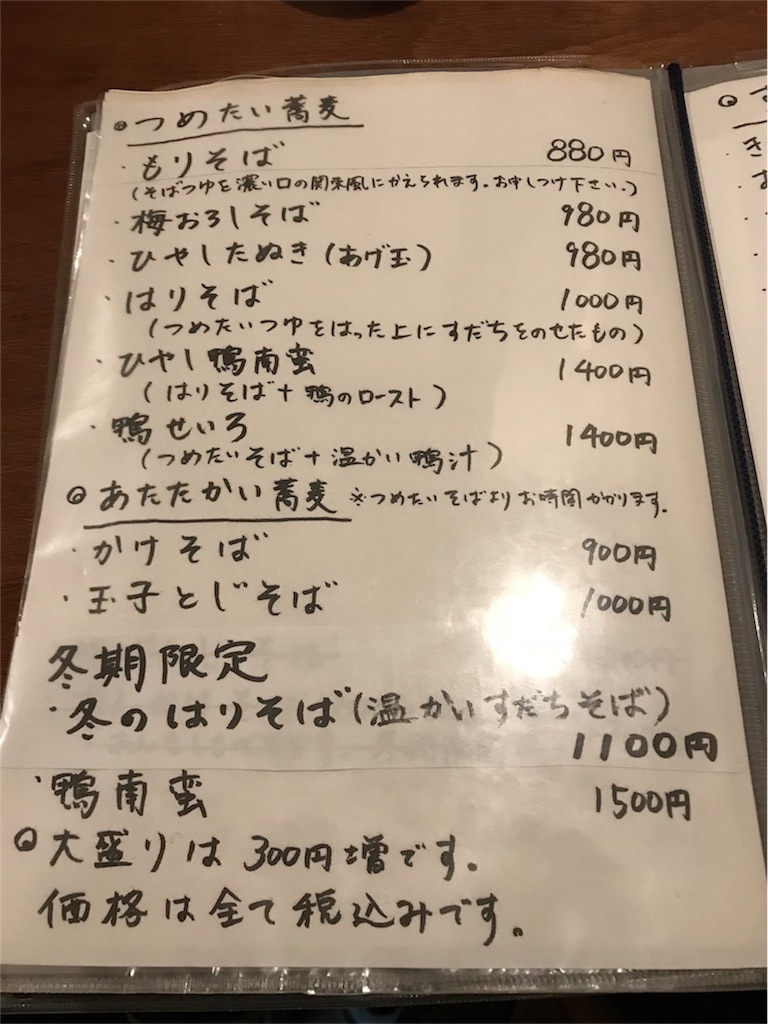 つめたい蕎麦
・もりそば 880円
(そばつゆを濃い口の関東風にかえられます。お申しつけ下さい。)
・梅おろしそば 980円
・ひやしたぬき(あげ玉) 980円
・はりそば 1000円
(つめたいつゆをはった上にすだちをのせたもの)
・ひやし鴨南蛮 1400円
(はりそば+鴨のロースト)
・鴨せいろ 1400円
(つめたいそば+温かい鴨汁)
あたたかい蕎麦 ※つめたいそばよりお時間かかります。
・かけそば 900円
・玉子とじそば 1000円
冬期限定
・冬のはりそば(温かいすだちそば)
1100円
・鴨南蛮 1500円
大盛りは300円増です。
価格は全て税込みです。